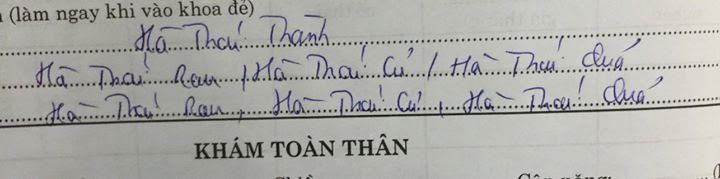 (làm ngay khi vào khoa đẻ)
Hà Thái Thanh
Hà Thái Rau / Hà Thái Củ / Hà Thái Quả
Hà Thái Rau, Hà Thái Củ, Hà Thái Quả
KHÁM TOÀN THÂN